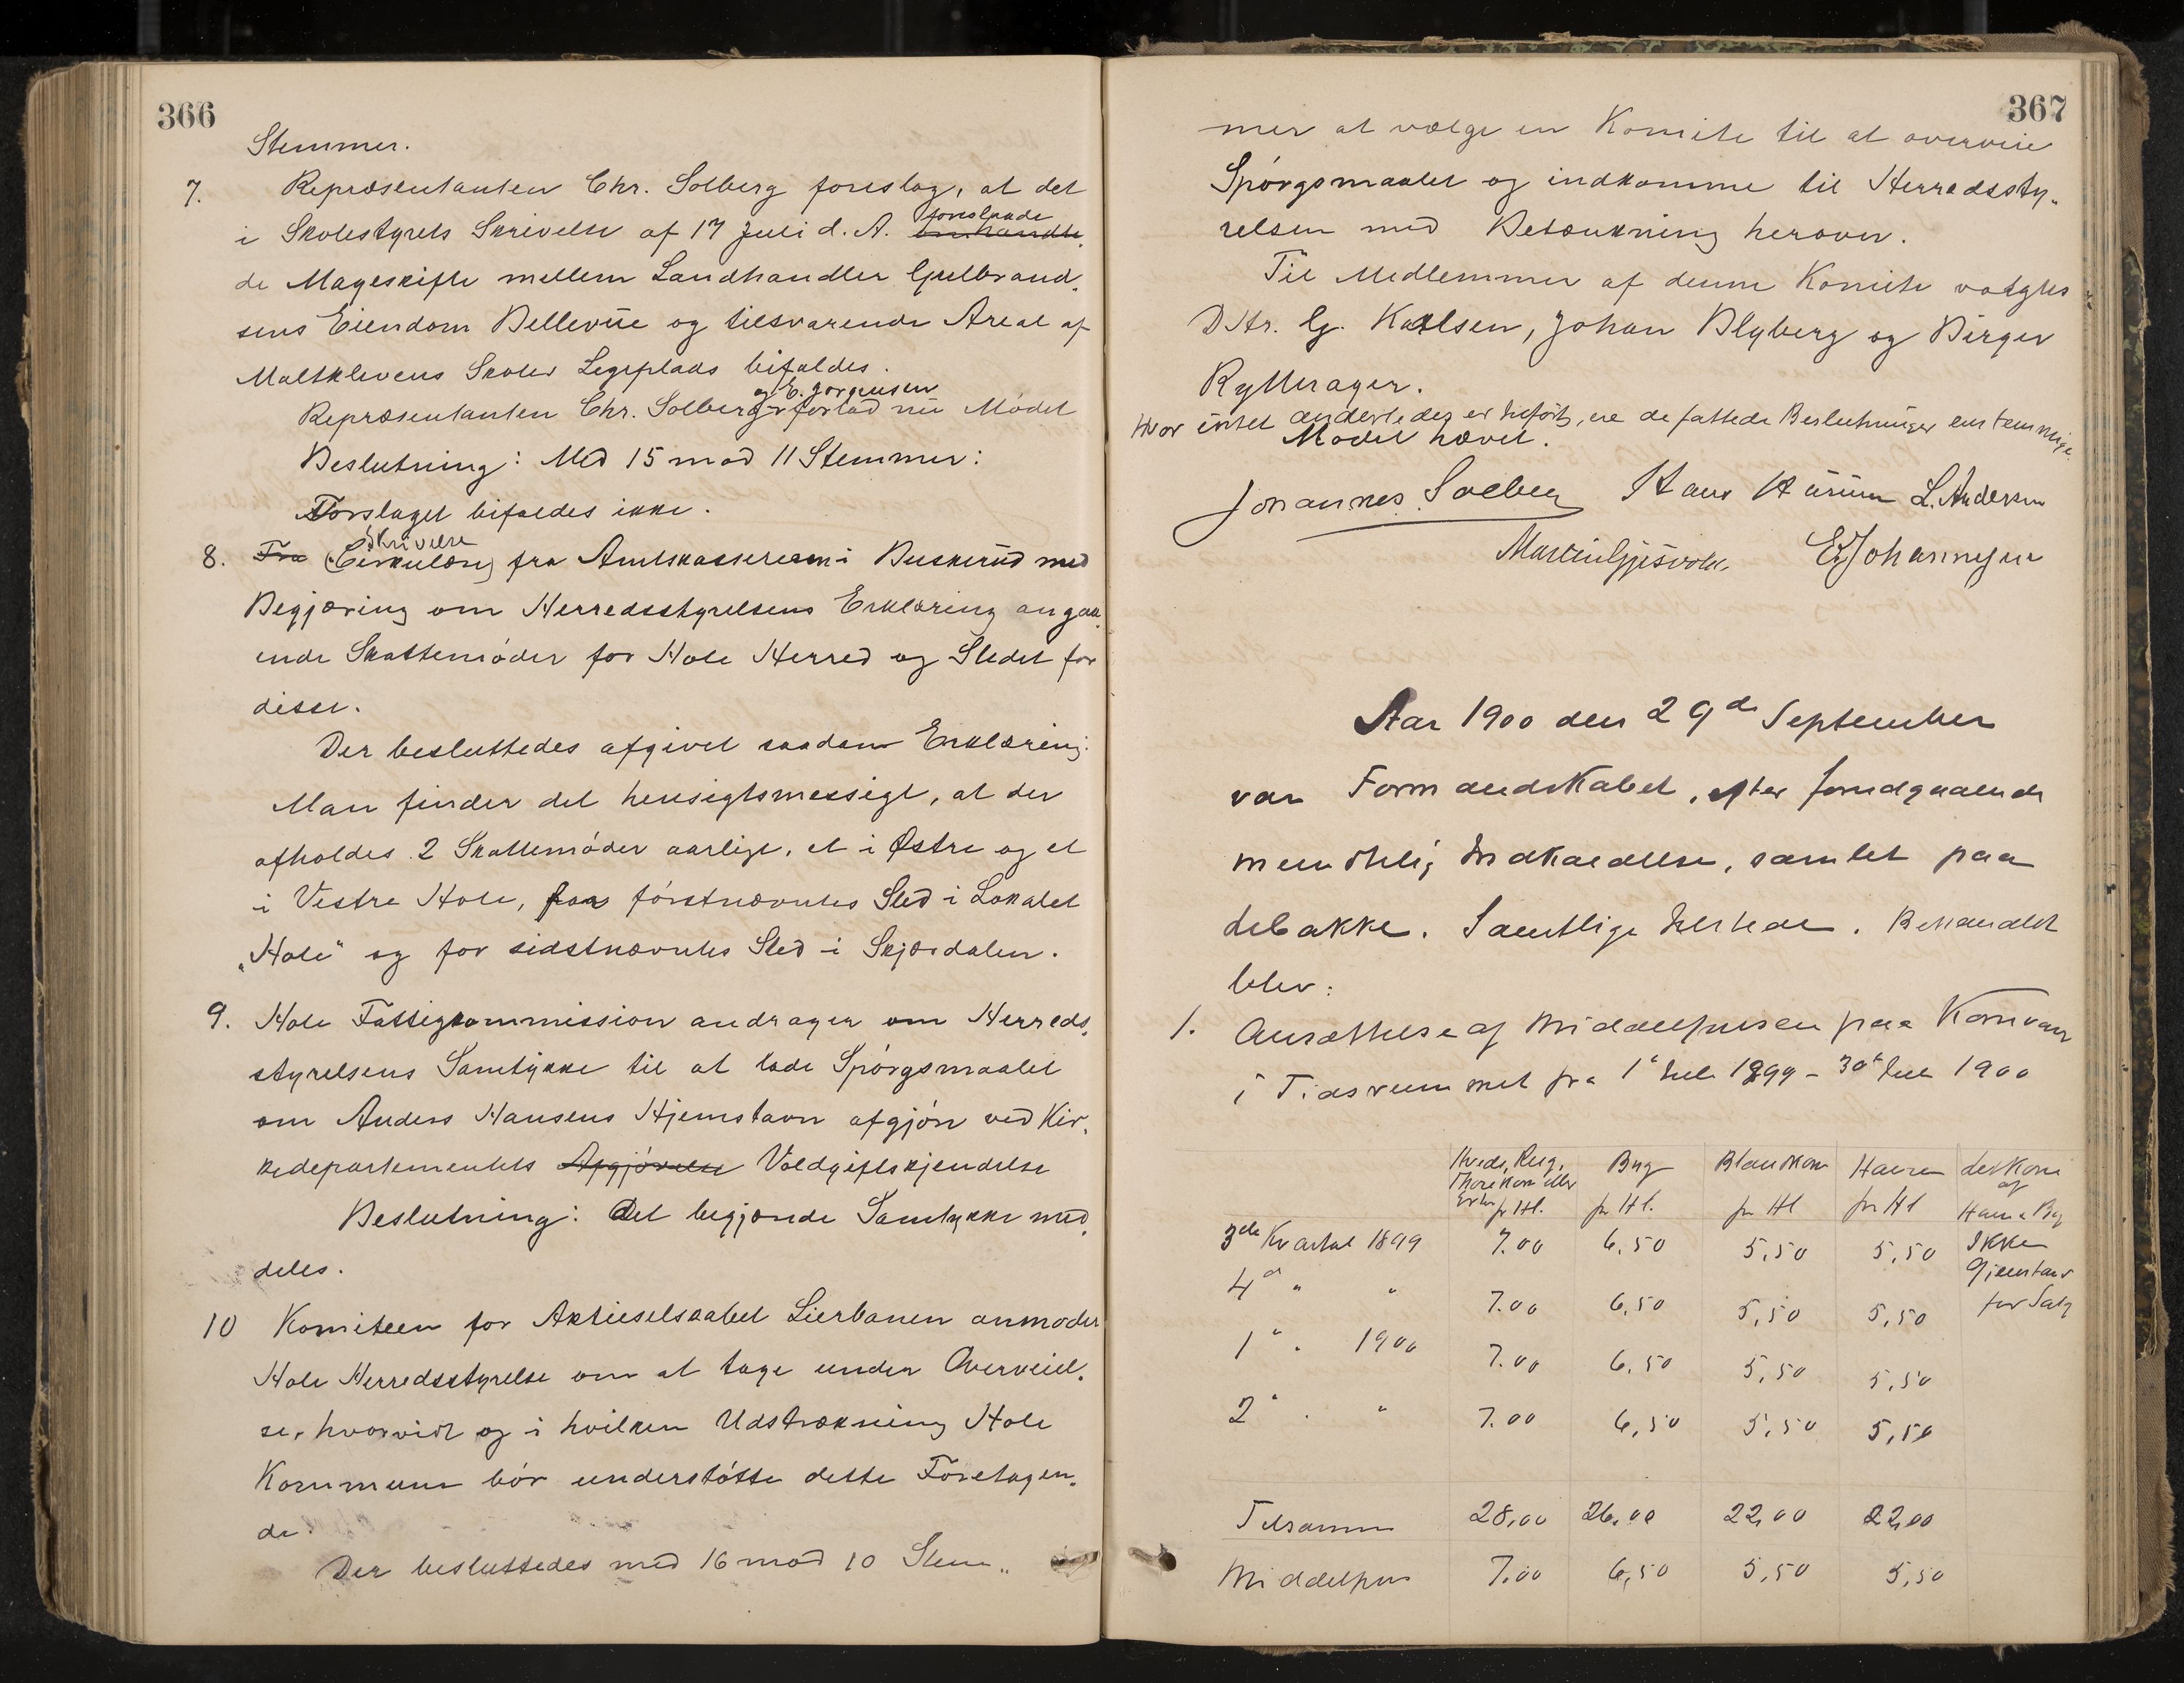 366
Stemmer.
7. Repræsentanten Chr. Solberg foreslog, at det
foreslaaede
i Skolestyrets Skrivelse af 17 Juli d. A. omhandle-
de Mageskifte mellem Landhandler Gulbrand-
sens Eiendom Bellevue og tilsvarende Areal af
Maltklevens Skoles Legeplads bifaldes.
og E. Jørgensen
Repræsentanten Chr. Solberg forlod nu Mødet
Beslutning: Med 15 mod 11 Stemmer:
Forslaget bifaldes ikke.
Skrivelse
8. Fra (Cirkulære) fra Amtskassereren i Buskerud med
Begjæring om Herredsstyrelsens Erklæring angaa-
ende Skattemøder for Hole Herred og Stedet for
disse.
Der besluttedes afgivet saadan Erklæring:
Man finder det hensigtsmessigt, at der
afholdes 2 Skattemøder aarligt, et i Østre og et
i Vestre Hole, for førstnævntes Sted i Lokalet
„Hole" og for sidstnævntes Sted i Skjærdalen.
9. Hole Fattigkommission andrager om Herreds-
styrelsens Samtykke til at lade Spørgsmaalet
om Anders Hansens Hjemstavn afgjøre ved Kir-
kedepartementets Afgjørelse Voldgiftskjendelse
Beslutning: Det begjærede Samtykke med-
deles.
10 Komiteen for Aktieselskabet Lierbanen anmoder
Hole Herredsstyrelse om at tage under Overveiel-
se, hvorvidt og i hvilken Udstrækning Hole
Kommune bør understøtte dette Foretagen-
de.
Der besluttedes med 16 mod 10 Stem-
367
mer at vælge en Komite til at overveie
Spørgsmaalet og indkomme til Herredssty-
relsen med Betænkning herover.
Til Medlemmer af denne Komite valgtes
DHr. G. Karlsen, Johan Blyberg og Birger
Rytterager.
Hvor intet anderledes er tilført, ere de fattede Beslutninger enstemmige.
Mødet hævet.
Johannes Solberg Hans Hurum L. Andersen
Martin Gjesvold E Johannesen
Aar 1900 den 29de September
var Formandskabet, efter forudgaaende
mundtlig Indkaldelse, samlet paa
Libakke. Samtlige tilstede. Behandlet
blev:
1. Ansættelse af Middelprisen paa Kornvarer
i Tidsrummet fra 1ste Juli 1899 - 30te Juni 1900
Hvede, Rug, Thorekorn eller Erter pr Hl. Byg pr Hl. Blandkorn pr Hl Havre pr Hl af Havre Byg
3de Kvartal 1899 7.00 6,50 5,50 5,50 Ikke
Gjenstand
4d " " 7.00 6,50 5,50 5,50 for Salg
1" " 1900 7.00 6,50 5,50 5,50
2" " " 7.00 6,50 5,50 5,50
Tilsammen 28,00 26,00 22,00 22,00
Middelpris 7.00 6,50 5,50 5,50